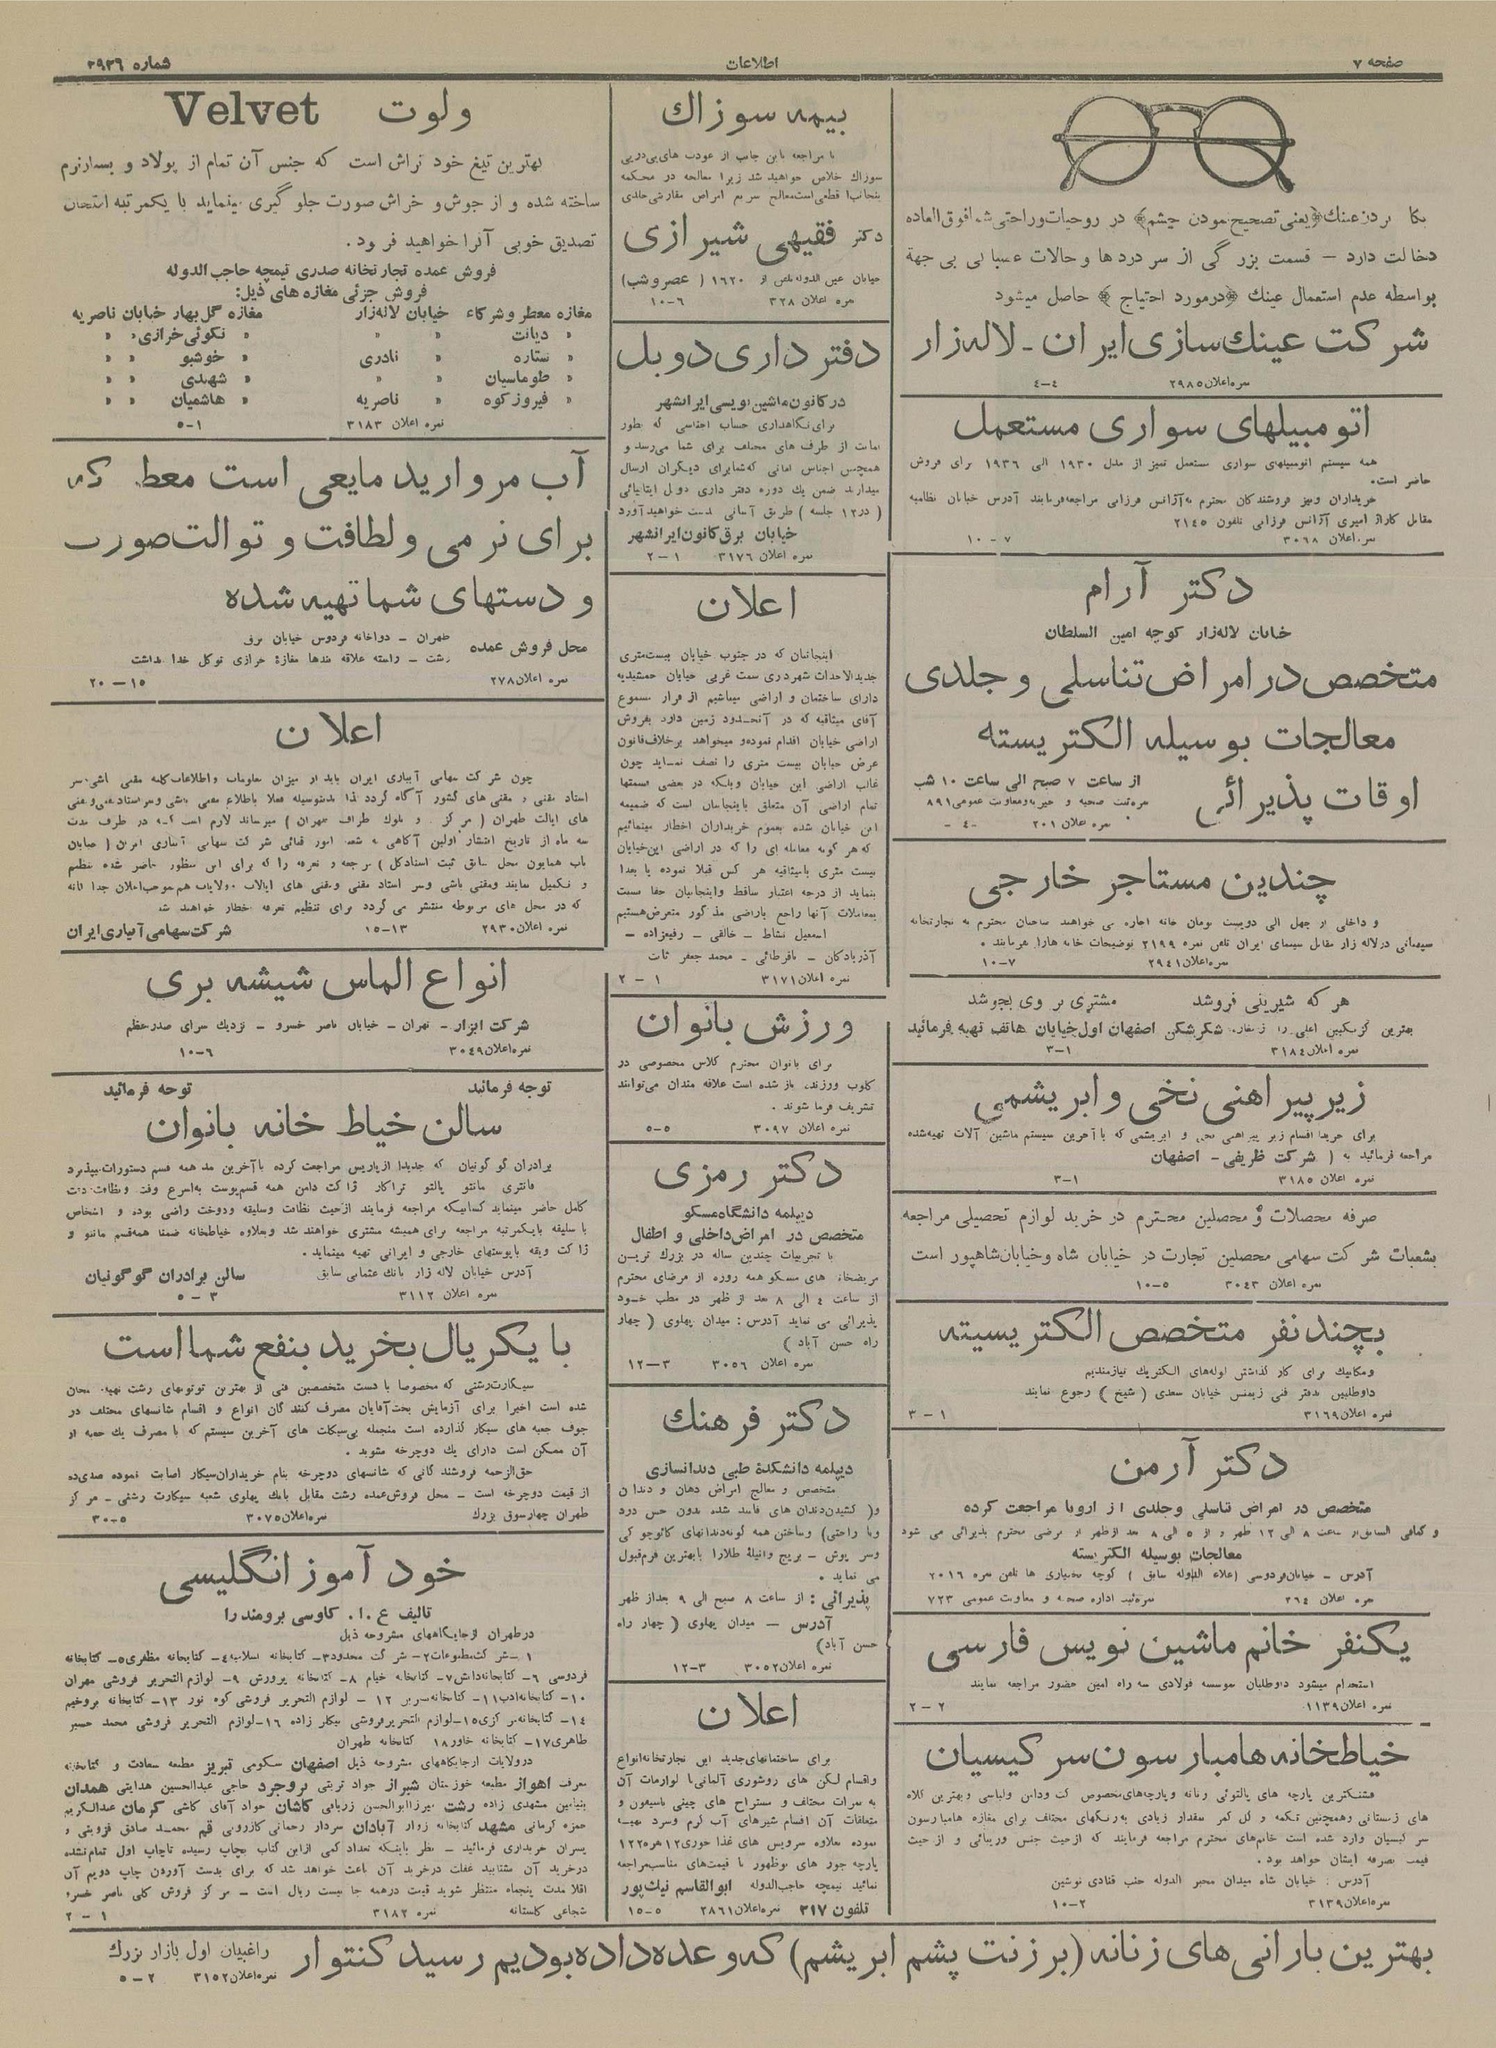 صفحه ۷
اطلاعات
شماره ۲۹۳۶
بکار بردن عینک (یعنی تصحیح نمودن چشم) در روحیات و راحتی شما فوق العاده
دخالت دارد – قسمت بزرگی از سردردها و حالات عصبانی بی جهة
بواسطه عدم استعمال عینک (درمورد احتیاج) حاصل میشود
شرکت عینک سازی ایران - لاله زار
نمره اعلان ۲۹۸۵ ٤-٤
اتومبیلهای سواری مستعمل
همه سیستم اتومبیلهای سواری مستعمل تمیز از مدل ۱۹۳۰ الی ۱۹۳۶ برای فروش
حاضر است.
خریداران و نیز فروشندگان محترم به آژانس فرزامی مراجعه فرمایند آدرس خیابان نظامیه
مقابل گاراژ امیری آژانس فرزامی تلفون ۲۱٤۵
نمره اعلان ۳۰٦۸ ۷ - ۱۰
دکتر آرام
خیابان لاله زار کوچه امین السلطان
متخصص در امراض تناسلی و جلدی
معالجات بوسیله الکتریسته
اوقات پذیرائی
از ساعت ۷ صبح الی ساعت ۱۰ شب
نمره ثبت صحیه و خیریه و معاونت عمومی ۸۹۱
نمره اعلان ۲۰۱ -٤-
چندین مستاجر خارجی
و داخلی از چهل الی دویست تومان خانه اجاره می خواهند صاحبان محترم به تجارتخانه
سیمانی در لاله زار مقابل سینمای ایران تلفن نمره ۲۱۹۹ توضیحات خانه هارا بفرمایند .
نمره اعلان ۲۹٤۱ ۷-۱۰
هر که شیرینی فروشد مشتری بر وی بجوشد
بهترین گزنگبین اعلی را از مغازه شکرشکن اصفهان اول خیابان هاتف تهیه فرمائید
نمره اعلان ۳۱۸٤ ۱-۳
زیرپیراهنی نخی و ابریشمی
برای خرید اقسام زیر پیراهنی نخی و ابریشمی که با آخرین سیستم ماشین آلات تهیه شده
مراجعه فرمائید به ( شرکت ظریفی - اصفهان
نمره اعلان ۳۱۸۵ ۱-۳
صرفه محصلات و محصلین محترم در خرید لوازم تحصیلی مراجعه
بشعبات شرکت سهامی محصلین تجارت در خیابان شاه و خیابان شاهپور است
نمره اعلان ۳۰٤۳ ۵-۱۰
بچند نفر متخصص الکتریسیته
و مکانیک برای کار گذاشتن لوله های الکتریک نیازمندیم
داوطلبین بدفتر فنی زیمنس خیابان سعدی ( شیخ ) رجوع نمایند
نمره اعلان ۳۱٦۹ ۱ - ۳
دکتر آرمن
متخصص در امراض تناسلی و جلدی از اروپا مراجعت کرده
و کمافی السابق از ساعت ۸ الی ۱۲ ظهر و از ۵ الی ۸ بعد از ظهر از مرضی محترم پذیرائی می شود
معالجات بوسیله الکتریسته
آدرس – خیابان فردوسی (علاء الدوله سابق ) کوچه بختیاری ها تلفن نمره ۲۰۱٦
نمره اعلان ۳٦٤ نمره ثبت اداره صحیه و معاونت عمومی ۷۲۳
یکنفر خانم ماشین نویس فارسی
استخدام میشود داوطلبان بموسسه فولادی سه راه امین حضور مراجعه نمایند
نمره اعلان ۱۱۳۹ ۲ - ۲
خیاطخانه هامبارسون سرکیسیان
قشنگترین پارچه های پالتوئی زنانه و پارچه های مخصوص کت و دامن و لباسی و بهترین کلاه
های زمستانی و همچنین تکمه و گل کمر بمقدار زیادی به رنگهای مختلف برای مغازه هامبارسون
سرکیسیان وارد شده است خانم های محترم مراجعه فرمایند که از حیث جنس و زیبائی و از حیث
قیمت بصرفه ایشان خواهد بود .
آدرس : خیابان شاه میدان مخبر الدوله جنب قنادی نوشین
نمره اعلان ۳۱۳۹ ۲-۱۰
بیمه سوزاک
با مراجعه باین جانب از عودت های پی درپی
سوزاک خلاص خواهید شد زیرا معالجه در محکمه
اینجانب قطعی است معالج سریع امراض مقاربتی جلدی
دکتر فقیهی شیرازی
خیابان عین الدوله تلفن از ۱٦۲۰ ( عصر و شب)
نمره اعلان ۳۲۸ ٦-۱۰
دفتر داری دوبل
در کانون ماشین نویسی ایرانشهر
برای نگاهداری حساب اجناسی که بطور
امانت از طرف های مختلف برای شما می رسد و
همچنین اجناس امانی که شما برای دیگران ارسال
میدارید ضمن یک دوره دفتر داری دوبل ایتالیائی
( در ۱۲ جلسه ) بطریق آسانی بدست خواهید آورد
خیابان برق کانون ایرانشهر
نمره اعلان ۳۱۷٦ ۱ - ۲
اعلان
اینجانبان که در جنوب خیابان بیست متری
جدیدالاحداث شهرداری سمت غربی خیابان جمشیدیه
دارای ساختمان و اراضی میباشیم از قرار مسموع
آقای میثاقیه که در آنحدود زمین دارد بفروش
اراضی خیابان اقدام نموده و میخواهد برخلاف قانون
عرض خیابان بیست متری را نصف نماید چون
غالب اراضی این خیابان و بلکه در بعضی قسمتها
تمام اراضی آن متعلق باینجانبان است که ضمیمه
این خیابان شده بعموم خریداران اخطار مینمائیم
که هر گونه معامله ای را که در اراضی این خیابان
بیست متری با میثاقیه هر کس قبلا نموده یا بعدا
بنماید از درجه اعتبار ساقط و اینجانبان حقا نسبت
بمعاملات آنها راجع باراضی مذکور متعرض هستیم
اسمعیل نشاط – خالقی – رفیع زاده –
آذربادکان – باقر طائی – محمد جعفر ثابت
نمره اعلان ۳۱۷۱ ۱ - ۲
ورزش بانوان
برای بانوان محترم کلاس مخصوصی در
کلوب ورزندی باز شده است علاقه مندان می توانند
تشریف فرما شوند .
نمره اعلان ۳۰۹۷ ۵-۵
دکتر رمزی
دیپلمه دانشگاه مسکو
متخصص در امراض داخلی و اطفال
با تجربیات چندین ساله در بزرگ ترین
مریضخانه های مسکو همه روزه از مرضای محترم
از ساعت ٤ الی ۸ بعد از ظهر در مطب خود
پذیرائی می نماید آدرس : میدان پهلوی ( چهار
راه حسن آباد )
نمره اعلان ۳۰۵٦ ۳—۱۲
دکتر فرهنگ
دیپلمه دانشکدۀ طبی دندانسازی
متخصص و معالج امراض دهان و دندان
و( کشیدن دندان های فاسد شده بدون حس درد
و با راحتی) و ساختن همه گونه دندانهای کائوچوکی
و سر پوش – بریج و انپلۀ طلا را با بهترین فرم قبول
می نماید .
پذیرائی : از ساعت ۸ صبح الی ۹ بعد از ظهر
آدرس – میدان پهلوی ( چهار راه
حسن آباد)
نمره اعلان ۳۰۵۲ ۳-۱۲
اعلان
برای ساختمانهای جدید این تجارتخانه انواع
و اقسام لگن های روشوری آلمانی با لوازمات آن
به نمرات مختلف و مستراح های چینی باسیفون و
متعلقات آن اقسام شیرهای آب گرم و سرد تهیه
نموده بعلاوه سرویس های غذا خوری ۱۲ نفره ۱۲۲
پارچه جور های نوظهور با قیمت های مناسب مراجعه
نمائید تیمچه حاجب الدوله ابوالقاسم نیک پور
تلفون ۳۱۷ نمره اعلان ۲۸٦۱ ۵-۱۵
ولوت Velvet
بهترین تیغ خود تراش است که جنس آن تمام از پولاد و بسیار نرم
ساخته شده و از جوش و خراش صورت جلوگیری مینماید با یکمرتبه امتحان
تصدیق خوبی آنرا خواهید فرمود.
فروش عمده تجارتخانه صدری تیمچه حاجب الدوله
فروش جزئی مغازه های ذیل:
مغازه معطر و شرکاء خیابان لاله زار مغازه گل بهار خیابان ناصریه
« دیانت « « « نکوئی خرازی « «
« ستاره « نادری « خوشبو « «
« طوماسیان « « « شهدی « «
« فیروز کوه « ناصریه « هاشمیان « «
نمره اعلان ۳۱۸۳ ۱-۵
آب مروارید مایعی است معطر که
برای نرمی و لطافت و توالت صورت
و دستهای شما تهیه شده
محل فروش عمده
طهران – دواخانه فردوس خیابان برق
رشت – راسته علاقه بندها مغازۀ خرازی توکل خدا بهداشت
نمره اعلان ۲۷۸ ۱۵—۲۰
اعلان
چون شرکت سهامی آبیاری ایران باید از میزان معلومات و اطلاعات کلیه مقنی باشی سر
استاد مقنی و مقنی های کشور آگاه گردد لذا بدینوسیله فعلا باطلاع مقنی باشی و سر استاد مقنی و مقنی
های ایالت طهران ( مرکز و بلوک اطراف طهران ) میرساند لازم است که در ظرف مدت
سه ماه از تاریخ انتشار اولین آگاهی به شعبه امور قنائی شرکت سهامی آبیاری ایران ( خیابان
باب همایون محل سابق ثبت اسناد کل ) مراجعه و تعرفه را که برای این منظور حاضر شده تنظیم
و تکمیل نمایند و مقنی باشی و سر استاد مقنی و مقنی های ایالات و ولایات هم بموجب اعلان جداگانه
که در محل های مربوطه منتشر می گردد برای تنظیم تعرفه اخطار خواهند شد
نمره اعلان ۲۹۳۰ ۱۳-۱۵ شرکت سهامی آبیاری ایران
انواع الماس شیشه بری
شرکت ابزار - تهران – خیابان ناصر خسرو – نزدیک سرای صدر اعظم
نمره اعلان ۳۰٤۹ ٦-۱۰
توجه فرمائید توجه فرمائید
سالن خیاط خانه بانوان
برادران گوگونیان که جدیدا از پاریس مراجعت کرده با آخرین مد همه قسم دستورات میپذیرد
فانتزی مانتو پالتو تراکار ژاکت دامن همه قسم پوست به اسرع وقت و نظافت دقت
کامل حاضر مینماید کسانیکه مراجعه فرمایند از حیث نظافت و سلیقه و دوخت راضی بوده و اشخاص
با سلیقه با یکمرتبه مراجعه برای همیشه مشتری خواهند شد و بعلاوه خیاطخانه ضمنا همه قسم مانتو و
ژاکت و یقه با پوستهای خارجی و ایرانی تهیه مینماید .
آدرس خیابان لاله زار بانک عثمانی سابق سالن برادران گوگونیان
نمره اعلان ۳۱۱۲ ۳ - ۵
با یکریال بخرید بنفع شما است
سیگارت رشتی که مخصوصا با دست متخصصین فنی از بهترین توتونهای رشت تهیه
شده است اخیرا برای آزمایش بخت آقایان مصرف کنندگان انواع و اقسام شانسهای مختلف در
جوف جعبه های سیگار گذارده است منجمله بی سیکلت های آخرین سیستم که با مصرف یک جعبه از
آن ممکن است دارای یک دوچرخه بشوید .
حق الزحمه فروشندگانی که شانسهای دوچرخه بنام خریداران سیگار اصابت نموده صدی ده
از قیمت دوچرخه است – محل فروش عمده رشت مقابل بانک پهلوی شعبه سیگارت رشتی – مرکز
طهران چهارسوق بزرگ نمره اعلان ۳۰۷۵ ۵-۳۰
خود آموز انگلیسی
تالیف ع .ا. کاوسی برومند را
در طهران از جایگاههای مشروحه ذیل
۱– شرکت مطبوعات ۲– شرکت محدود ۳– کتابخانه اسلامیه ٤– کتابخانه مظفری ۵– کتابخانه
فردوسی ٦– کتابخانه دانش ۷– کتابخانه خیام ۸– کتابخانه پرورش ۹– لوازم التحریر فروشی مهران
۱۰– کتابخانه ادب ۱۱– کتابخانه ۱۲ – لوازم التحریر فروشی کوه نور ۱۳– کتابخانه بروخیم
۱٤– کتابخانه مرکزی ۱۵–لوازم التحریر فروشی بیگلر زاده ۱٦–لوازم التحریر فروشی محمد حسین
طاهری ۱۷– کتابخانه خاور ۱۸ کتابخانه طهران
در ولایات از جایگاههای مشروحه ذیل اصفهان سکوتی تبریز مطبعه سعادت و کتابخانه
معرفت اهواز مطبعه خوزستان شیراز جواد تربتی بروجرد حاجی عبدالحسین هدایتی همدان
بنیامین مشهدی زاده رشت میرزا ابوالحسن زربافی کاشان جواد آقای کاشی کرمان عبدالکریم
حمزه کرمانی مشهد کتابخانه زوار آبادان سردار رحمانی کازرونی قم محمد صادق قزوینی و
پسران خریداری فرمائید – نظر باینکه تعداد کمی از این کتاب بچاپ رسیده تا چاپ اول تمام نشده
در خرید آن بشتابید غفلت در خرید آن باعث خواهد شد که برای بدست آوردن چاپ دویم آن
اقلا مدت پنجماه منتظر شوید قیمت در همه جا بیست ریال است – مرکز فروش کلی ناصر خسرو
شجاعی گلستانه نمره ۳۱۸۲ ۱ - ۲
بهترین بارانی های زنانه (برزنت پشم ابریشم) که وعده داده بودیم رسید کنتوار راغبیان اول بازار بزرگ
نمره اعلان ۳۱۵۲ ۲-۵